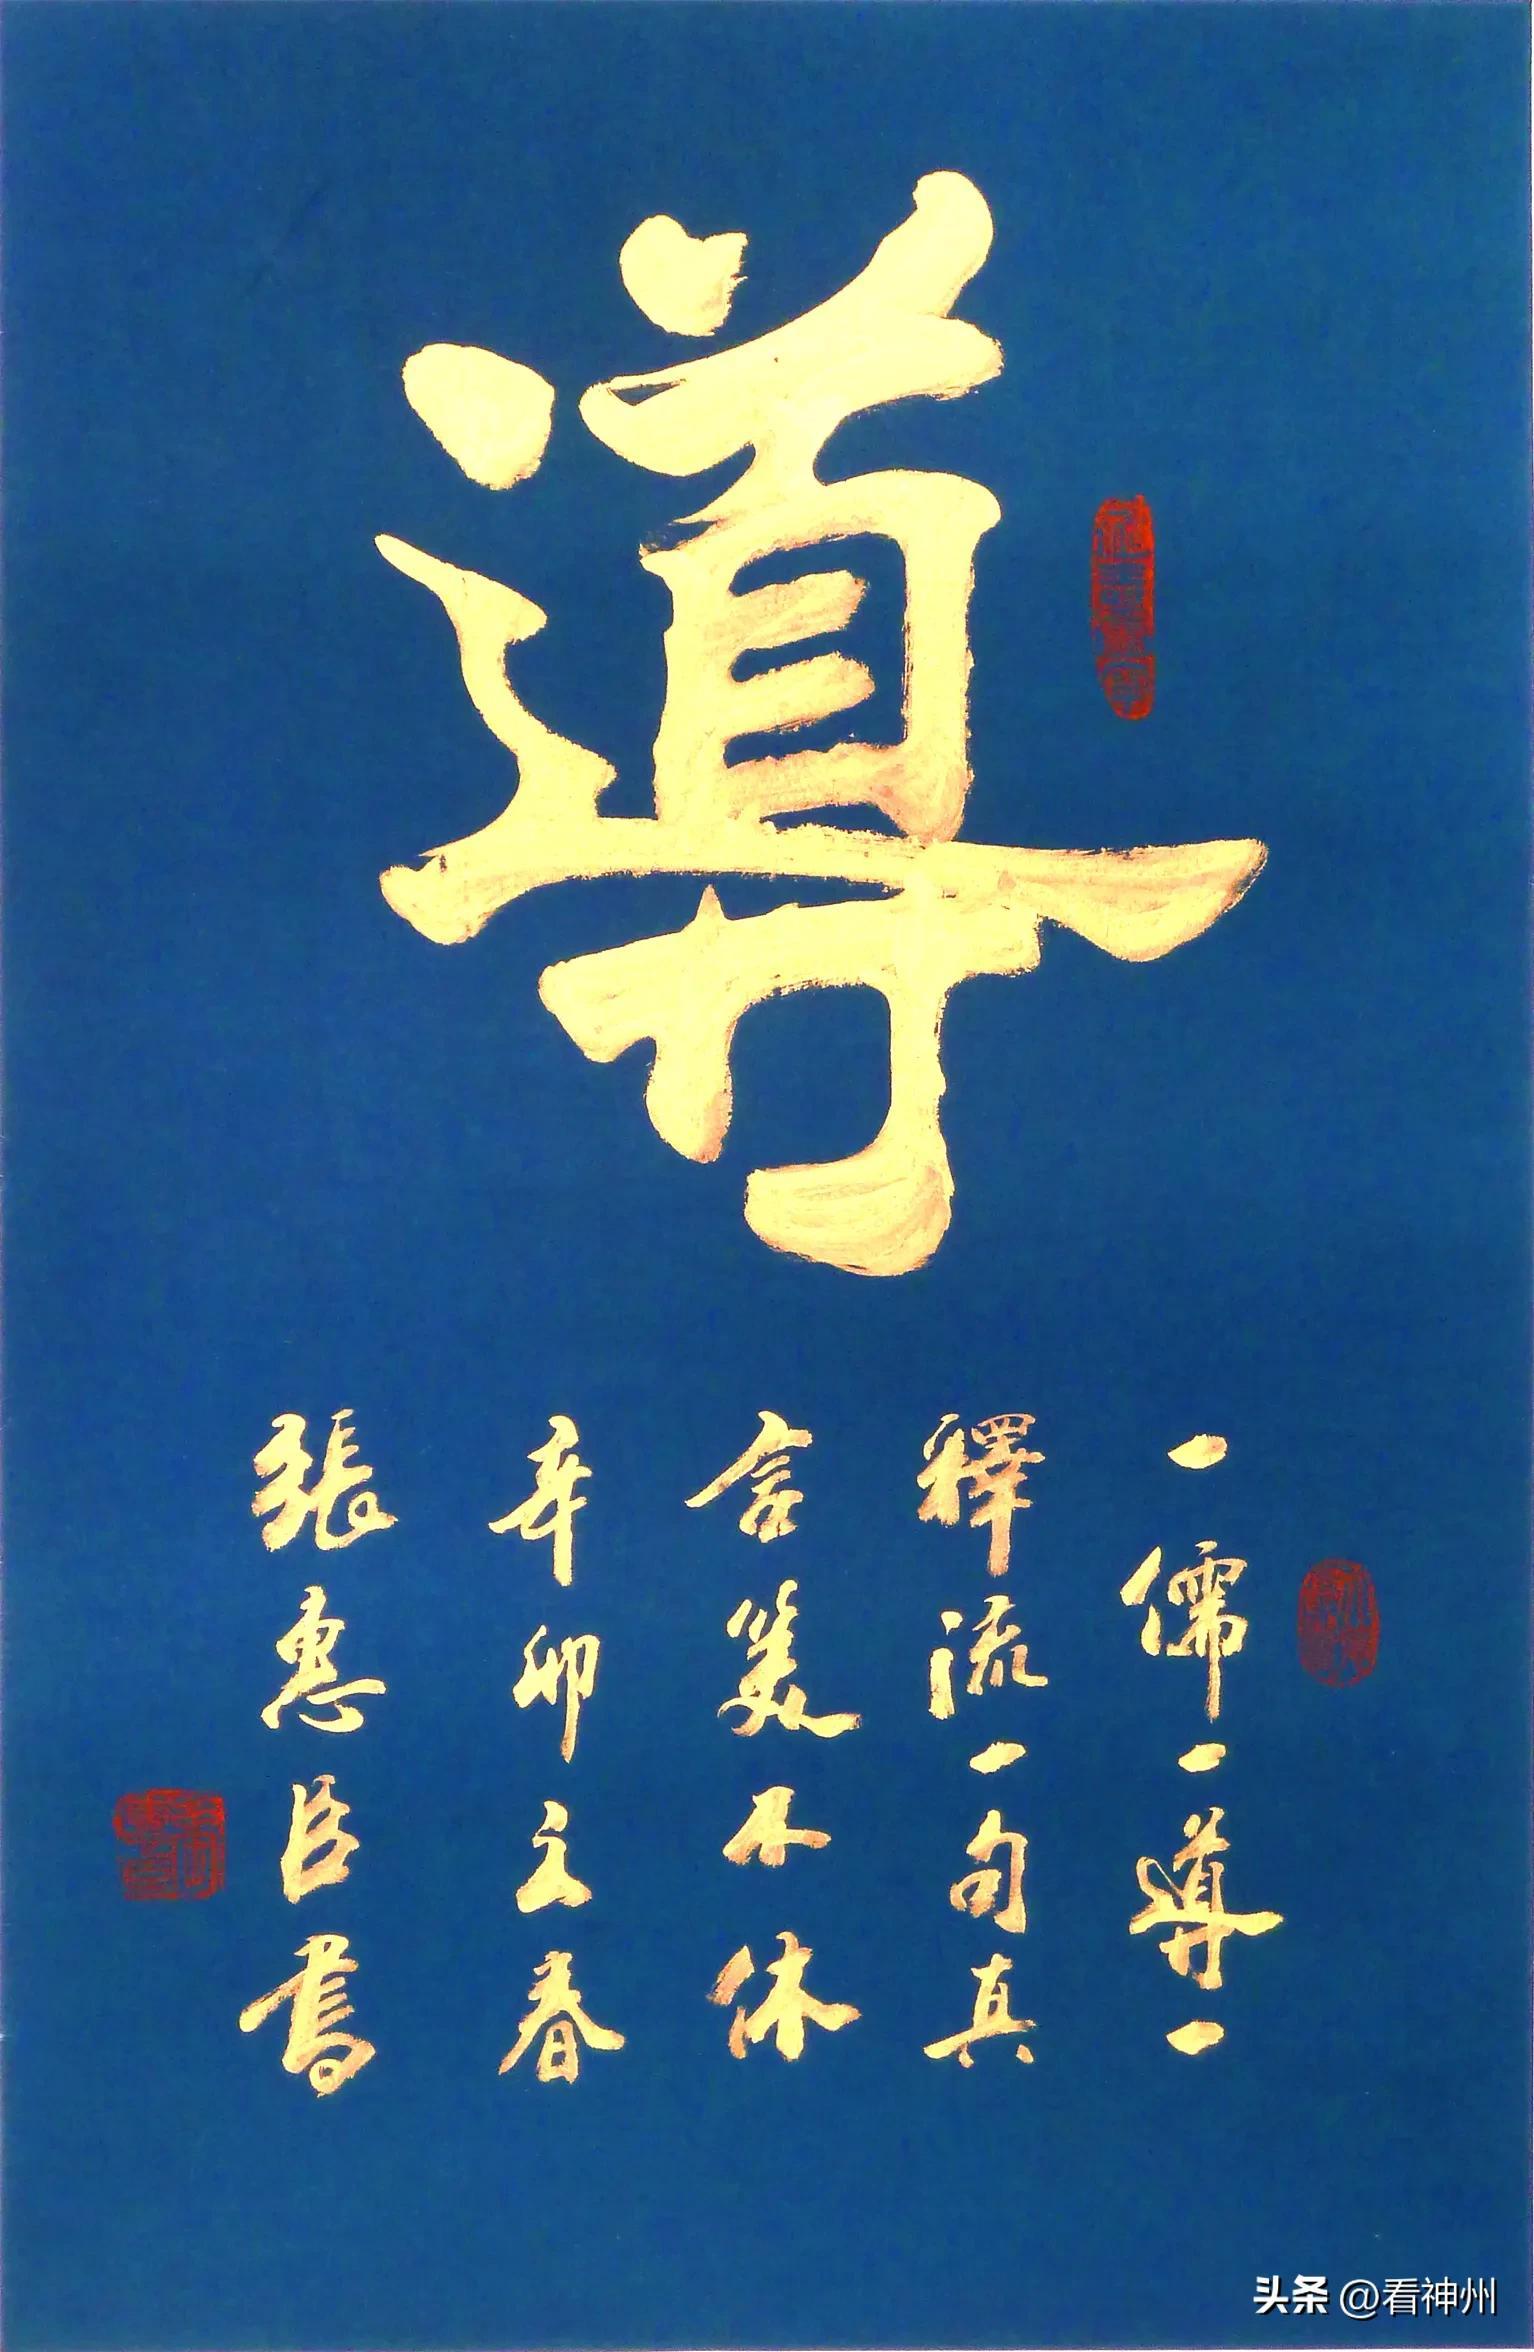 導
一儒一導一
釋流一句真
言笑不休
辛卯之春
張惠臣書
头条 @看神州